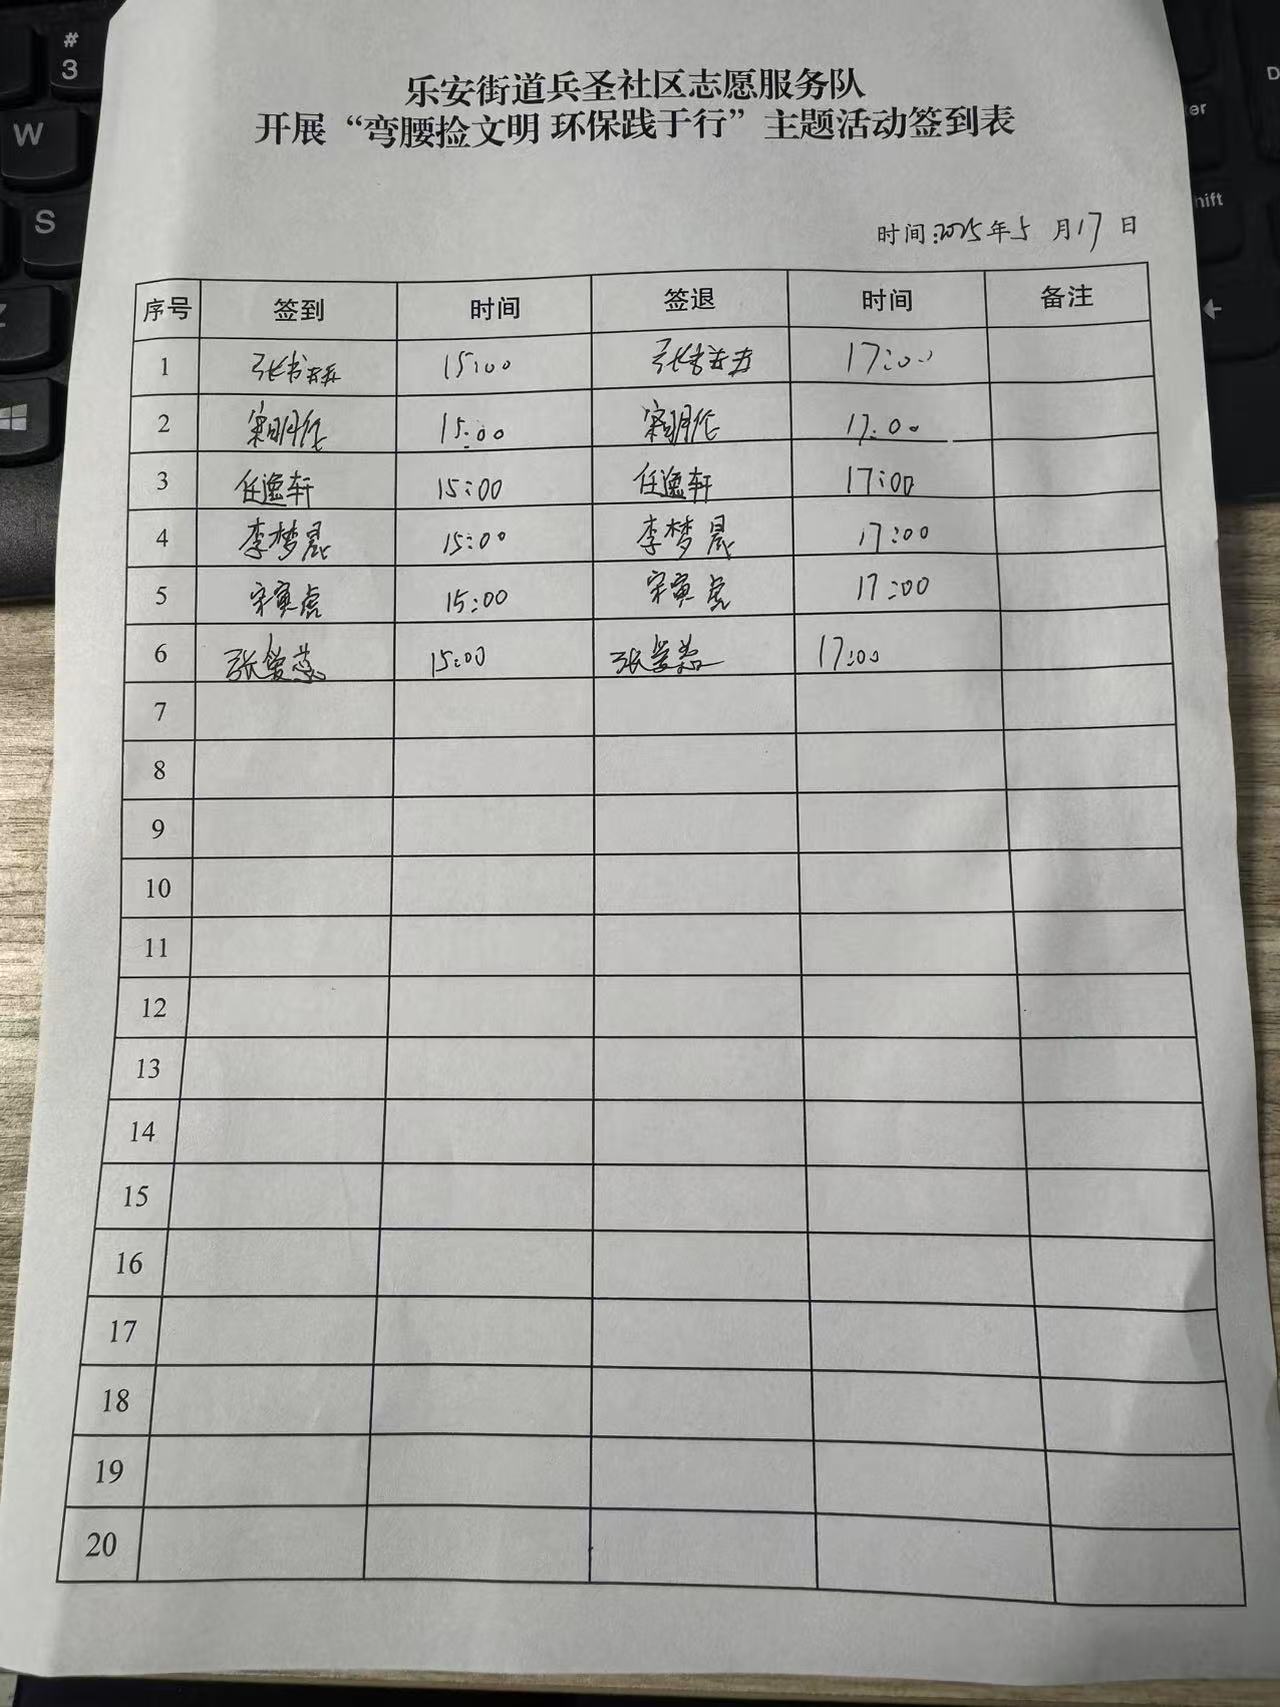 乐安街道兵圣社区志愿服务队
开展“弯腰捡文明 环保践于行”主题活动签到表
时间:2025年5月17日
序号 签到 时间 签退 时间 备注
1 15:00 17:00
2 15:00 17:00
3 任逸轩 15:00 任逸轩 17:00
4 李梦晨 15:00 李梦晨 17:00
5 宋寅虎 15:00 宋寅虎 17:00
6 15:00 17:00
7
8
9
10
11
12
13
14
15
16
17
18
19
20
# 3
W
S
Z
hift